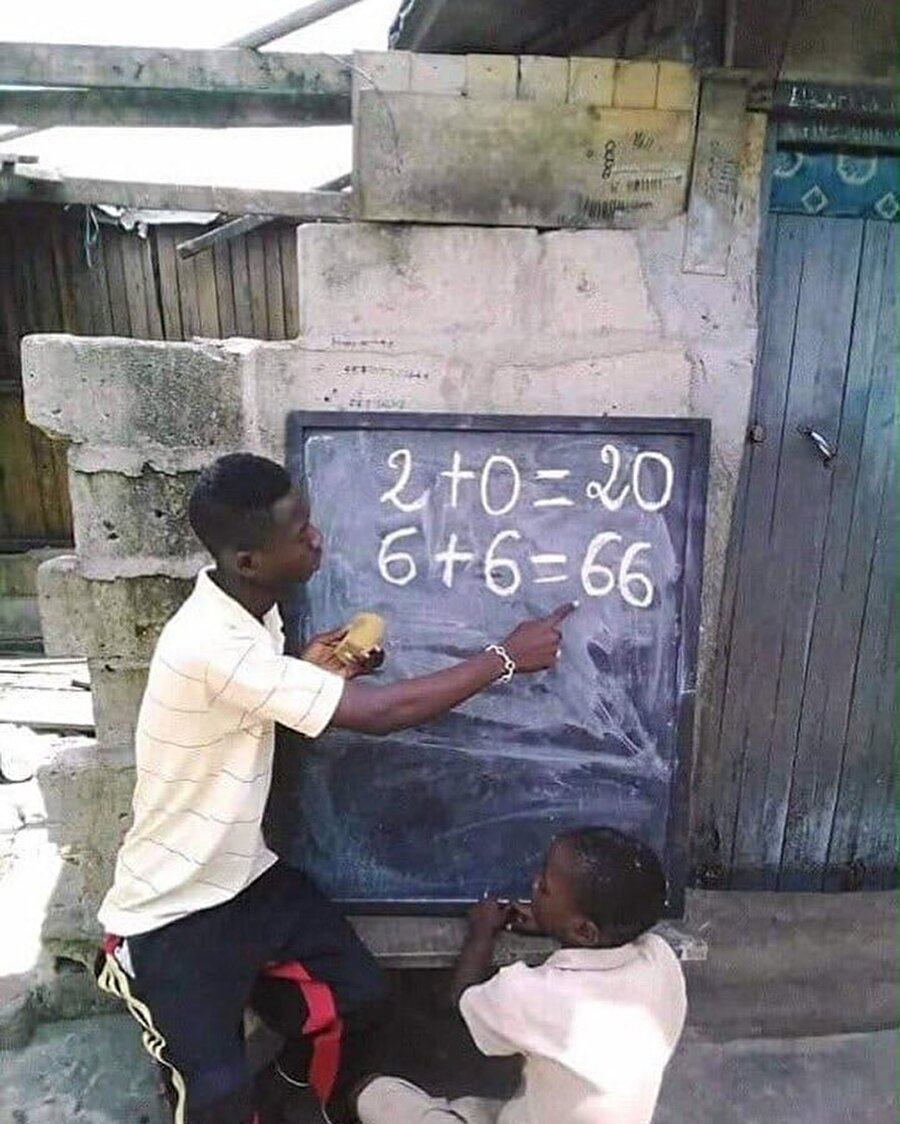 2+0=20
6+6=66